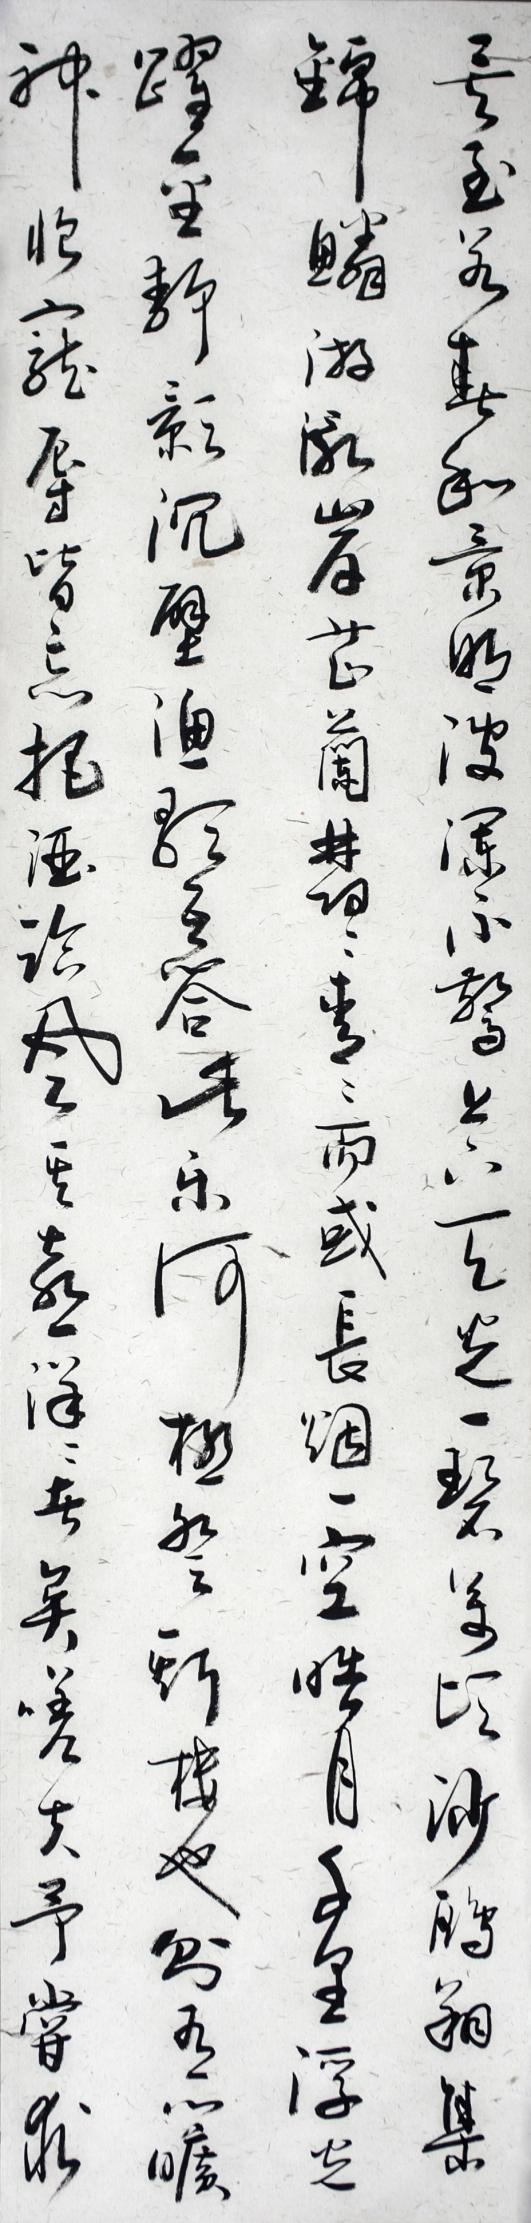 矣至若春和景明波瀾不驚上下天光一碧萬頃沙鷗翔集
錦鱗游泳岸芷蘭鬱々青々而或長烟一空皓月千里浮光
躍金靜影沉璧漁歌互答此樂何極登斯樓也則有心曠
神怡寵辱皆忘把酒臨風其喜洋々者矣嗟夫予嘗求